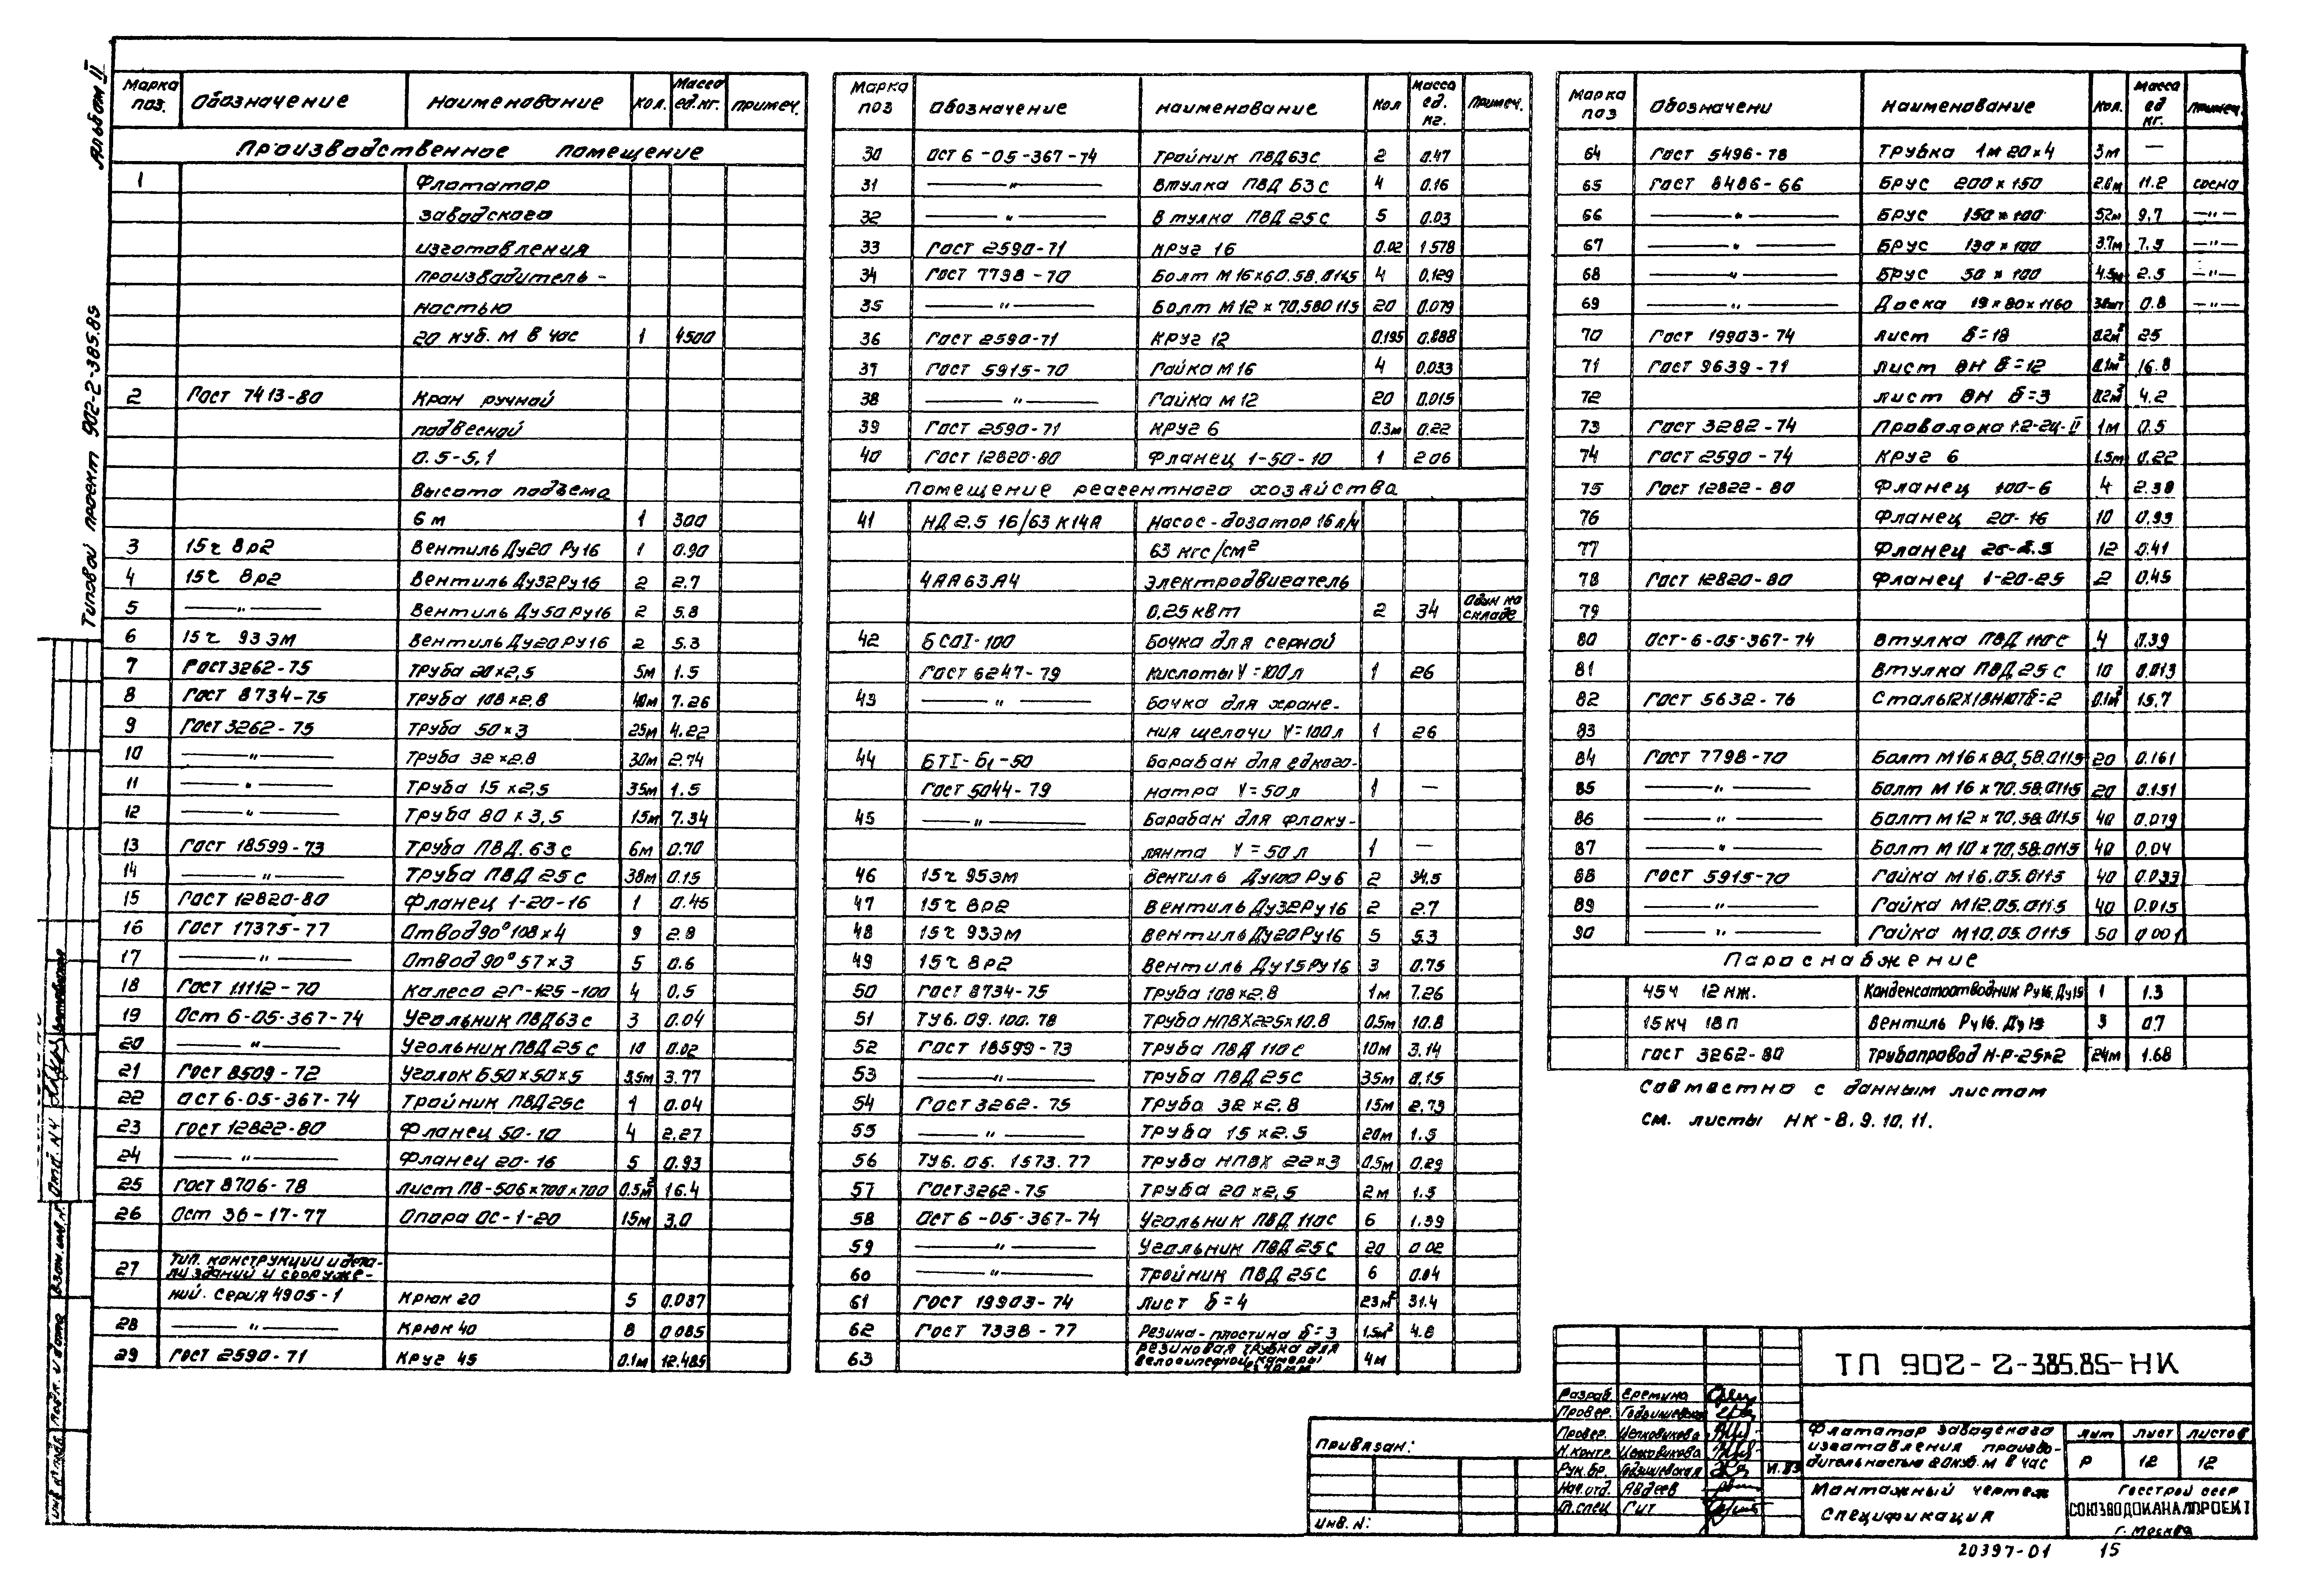 Альбом II
Типовой проект 902-2-385.85
Марка поз. Обозначение Наименование Кол. Масса ед.кг. Примеч.
Производственное помещение
1 Флататор
заводского
изготовления
производитель-
ностью
20 куб. м в час 1 4500
2 Гост 7413-80 Кран ручной
подвесной
0.5-5,1
Высота подъема
6 м 1 300
3 15ч 8р2 Вентиль Ду20 Ру16 1 0.90
4 15ч 8р2 Вентиль Ду32Ру16 2 2.7
5 —"— Вентиль Ду50Ру16 2 5.8
6 15ч 93ЭМ Вентиль Ду20Ру16 2 5.3
7 Гост3262-75 Труба 20×2,5 5м 1.5
8 Гост 8734-75 Труба 108×2.8 40м 7.26
9 Гост3262-75 Труба 50×3 25м 4.22
10 —"— Труба 32×2.8 30м 2.74
11 —"— Труба 15×2.5 35м 1.5
12 —"— Труба 80×3,5 15м 7.34
13 Гост 18599-73 Труба ПВД.63с 6м 0.70
14 —"— Труба ПВД 25с 38м 0.15
15 Гост 12820-80 Фланец 1-20-16 1 0.45
16 Гост 17375-77 Отвод90°108×4 9 2.8
17 —"— Отвод90°57×3 5 0.6
18 Гост 11112-70 Колесо 2Г-125-100 4 0.5
19 Ост 6-05-367-74 Угольник ПВД63с 3 0.04
20 —"— Угольник ПВД25с 10 0.02
21 Гост 8509-72 Уголок Б50×50×5 3.5м 3.77
22 Ост 6-05-367-74 Тройник ПВД25с 1 0.04
23 Гост 12822-80 Фланец 50-10 4 2.27
24 —"— Фланец 20-16 5 0.93
25 Гост 8706-78 Лист ПВ-506×700×700 0.5м² 16.4
26 Ост 36-17-77 Опора ОС-1-20 15м 3.0
27 Тип. конструкции и дета-
ли зданий и сооруже-
ний. серия 4905-1 Крюк 20 5 0.037
28 —"— Крюк 40 8 0.085
29 Гост 2590-71 Круг 45 0.1м 12.485
Марка поз Обозначение Наименование Кол Масса ед. кг. Примеч.
30 Ост 6-05-367-74 Тройник ПВД63с 2 0.47
31 —"— Втулка ПВД 63с 4 0.16
32 —"— Втулка ПВД 25с 5 0.03
33 Гост 2590-71 Круг 16 0.02 1.578
34 Гост 7798-70 Болт М16×60.58.0115 4 0.129
35 —"— Болт М12×70,580115 20 0.079
36 Гост 2590-71 Круг 12 0.195 0.888
37 Гост 5915-70 Гайка М16 4 0.033
38 —"— Гайка М12 20 0.015
39 Гост 2590-71 Круг 6 0.3м 0.22
40 Гост 12820-80 Фланец 1-50-10 1 2.06
Помещение реагентного хозяйства
41 НД 2.5 16/63 К14А Насос-дозатор 16л/ч
63 кгс/см²
4АА63А4 Электродвигатель
0,25 квт 2 34 Один на складе
42 БСОI-100 Бочка для серной
Гост 6247-79 кислоты V=100л 1 26
43 —"— Бочка для хране-
ния щелочи V=100л 1 26
44 БТI-Б1-50 Барабан для едкого-
Гост 5044-79 натра V=50л 1 —
45 —"— Барабан для флоку-
лянта V=50л 1 —
46 15ч 95ЭМ Вентиль Ду100 Ру6 2 34.5
47 15ч 8р2 Вентиль Ду32Ру16 2 2.7
48 15ч 93ЭМ Вентиль Ду20Ру16 5 5.3
49 15ч 8р2 Вентиль Ду15Ру16 3 0.75
50 Гост 8734-75 Труба 108×2.8 1м 7.26
51 ТУ6.09.100.78 Труба НПВХ225×10.8 0.5м 10.8
52 Гост 18599-73 Труба ПВД 110с 10м 3.14
53 —"— Труба ПВД25с 35м 0.15
54 Гост3262-75 Труба 32×2.8 15м 2.73
55 —"— Труба 15×2.5 20м 1.5
56 ТУ6.05.1573.77 Труба НПВХ 22×3 0.5м 0.29
57 Гост3262-75 Труба 20×2,5 2м 1.5
58 Ост 6-05-367-74 Угольник ПВД 110с 6 1.39
59 —"— Угольник ПВД 25с 20 0.02
60 —"— Тройник ПВД 25с 6 0.04
61 Гост 19903-74 Лист δ=4 23м² 31.4
62 Гост 7338-77 Резина-пластина δ=3 1.5м² 4.8
63 Резиновая трубка для
велосипедной камеры 4м
Марка поз Обозначени Наименование Кол. Масса ед кг. Примеч.
64 Гост 5496-78 Трубка 1м 20×4 3м —
65 Гост 8486-66 Брус 200×150 2.8м 11.2 сосна
66 —"— Брус 150×100 52м 9.7 —"—
67 —"— Брус 130×100 3.7м 7.5 —"—
68 —"— Брус 50×100 4.5м 2.5 —"—
69 —"— Доска 19×80×1160 38шт 0.8 —"—
70 Гост 19903-74 Лист δ=18 0.2м² 25
71 Гост 9639-71 Лист ВН δ=12 0.1м² 16.8
72 Лист ВН δ=3 0.2м² 4.2
73 Гост 3282-74 Проволока 1.2-2Ц-II 1м 0.5
74 Гост 2590-74 Круг 6 1.5м 0.22
75 Гост 12822-80 Фланец 100-6 4 2.38
76 Фланец 20-16 10 0.93
77 Фланец 12 0.41
78 Гост 12820-80 Фланец 1-20-25 2 0.45
79
80 Ост-6-05-367-74 Втулка ПВД 110с 4 0.39
81 Втулка ПВД25с 10 0.013
82 Гост 5632-76 Сталь12Х18Н10Тδ=2 0.1м² 15.7
83
84 Гост 7798-70 Болт М16×80,58.0115 20 0.161
85 —"— Болт М16×70.58.0115 20 0.151
86 —"— Болт М12×70,58.0115 40 0.079
87 —"— Болт М10×70,58.0115 40 0.04
88 Гост 5915-70 Гайка М16.05.0115 40 0.033
89 —"— Гайка М12.05.0115 40 0.015
90 —"— Гайка М10.05.0115 50 0.001
Пароснабжение
45ч 12нж. Конденсатоотводник Ру16.Ду15 1 1.3
15кч 18п Вентиль Ру16. Ду15 3 0.7
Гост 3262-80 Трубопровод Н-Р-25×2 24м 1.68
Совместно с данным листом
см. листы НК-8.9.10.11.
Привязан:
Инв. N:
Разраб. Еремина
Провер. Годзишевская
Провер. Целковикова
Н.контр. Целковикова
Рук.бр. Годзишевская
Нач.отд. Авдеев
Гл.спец Гит
ТП 902-2-385.85-НК
Флататор заводского
изготовления произво-
дительностью 20куб. м в час
Лит Лист Листов
Р 12 12
Монтажный чертеж
Спецификация
Госстрой СССР
СОЮЗВОДОКАНАЛПРОЕКТ
г. Москва
20397-01 15
Инв. N° подл. Подп. и дата Взам. инв. N.